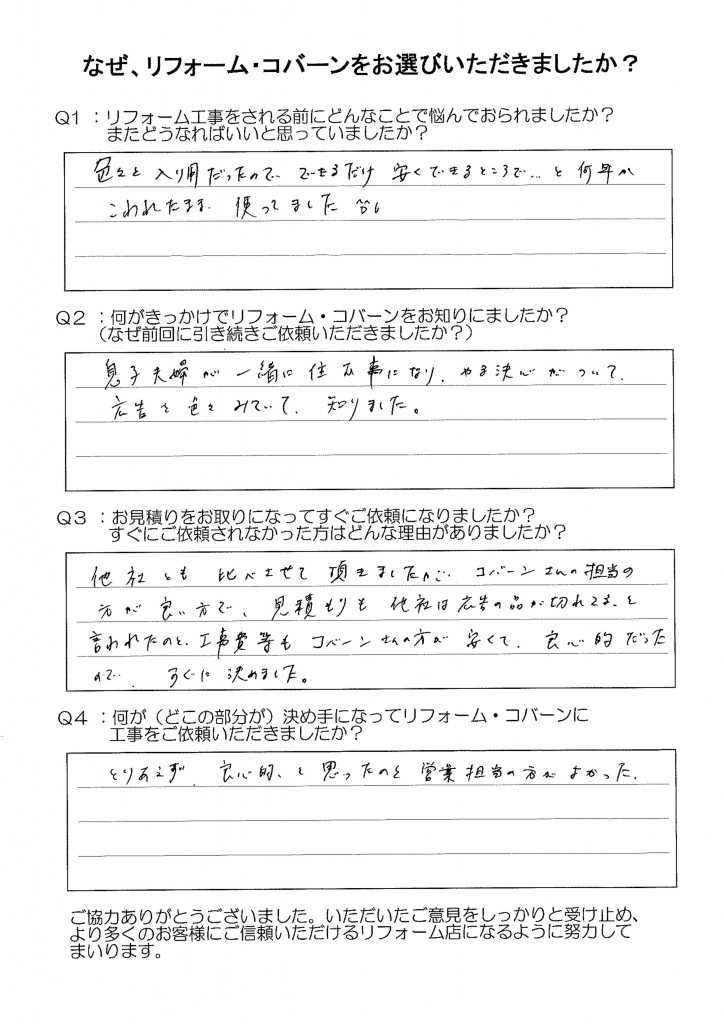 なぜ、リフォーム・コバーンをお選びいただきましたか？
Q1：リフォーム工事をされる前にどんなことで悩んでおられましたか？
またどうなればいいと思っていましたか？
色々と入り用だったので できるだけ 安くできるところで…と何年か
こわれたまま 使ってました
Q2：何がきっかけでリフォーム・コバーンをお知りにましたか？
（なぜ前回に引き続きご依頼いただきましたか？）
息子夫婦が一緒に住む事になり、やる決心がついて、
広告を色々みていて、知りました。
Q3：お見積りをお取りになってすぐご依頼になりましたか？
すぐにご依頼されなかった方はどんな理由がありましたか？
他社とも比べさせて頂きましたが、コバーンさんの担当の
方が良い方で、見積もりも他社は広告の品が切れてると
言われたのと、工事費等もコバーンさんの方が安くて、良心的だった
ので すぐに決めました。
Q4：何が（どこの部分が）決め手になってリフォーム・コバーンに
工事をご依頼いただきましたか？
とりあえず 良心的、と思ったのと営業担当の方がよかった。
ご協力ありがとうございました。いただいたご意見をしっかりと受け止め、
より多くのお客様にご信頼いただけるリフォーム店になるように努力して
まいります。